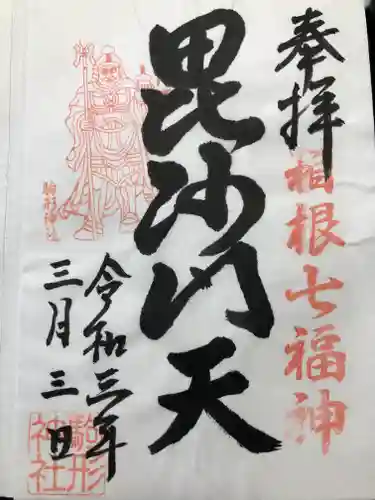 奉拝
箱根七福神
毘沙門天
令和三年
三月三日
駒形神社
駒形神社